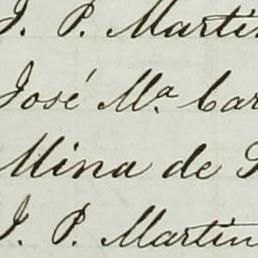 J. P. Martin
José Mª. Car
Mina de S
J. P. Martin